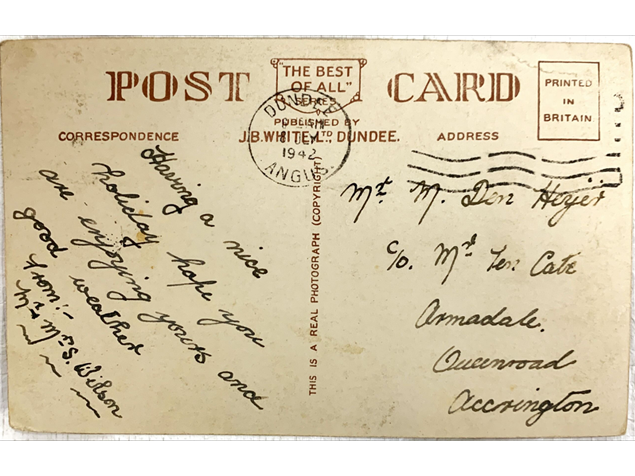 POST CARD
"THE BEST
OF ALL"
SERIES
PUBLISHED BY
J.B. WHITE LTD., DUNDEE.
CORRESPONDENCE
ADDRESS
PRINTED
IN
BRITAIN
DUNDEE
1942
ANGUS.
THIS IS A REAL PHOTOGRAPH (COPYRIGHT)
Having a nice
holiday hope you
are enjoying yours and
good weather
from:- Mr & Mrs S. Wilson
Mr. M. Den Heyer
c/o. Mrs Ten Cate
Armadale.
Queenroad
Accrington